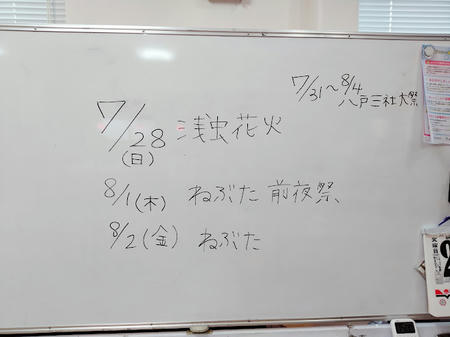 7/31～8/4
八戸三社大祭
7/28
(日)
浅虫花火
8/1(木) ねぶた 前夜祭
8/2(金) ねぶた